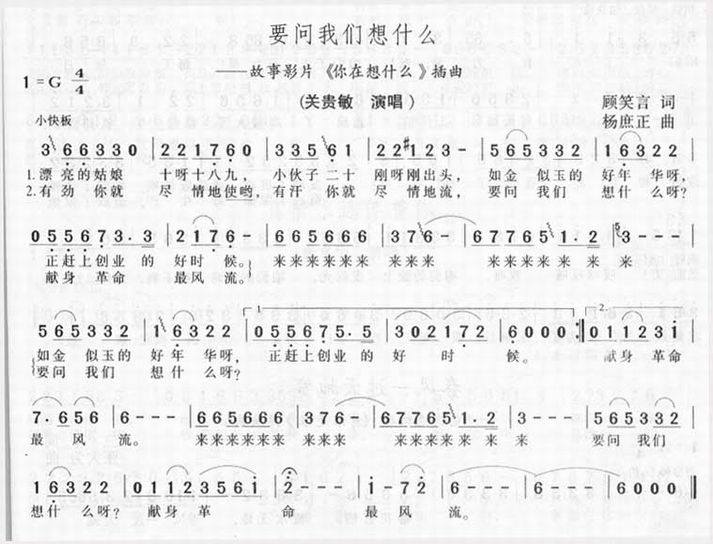 要问我们想什么
——故事影片《你在想什么》插曲
1=G 4/4
(关贵敏 演唱)
顾笑言 词
杨庶正 曲
小快板
3 66330 | 221760 | 33561 | 22#123- | 565332 | 16322 |
1.漂亮的姑娘 十呀十八九, 小伙子二十 刚呀刚出头, 如金 似玉的 好年 华呀,
2.有劲你就 尽 情地使哟, 有汗 你就 尽 情地流, 要问 我们 想什 么呀?
055673.3 | 2176- | 665666 | 376 | 677651.2 | 3-- |
正赶上创业的 好时 候。 来来来来来来 来来来 来来来来来 来 来
献身 革命 最风 流。
565332 | 16322 | 055675.5 | 302172 | 6000 :‖ 2. 011231 |
如金 似玉的 好年 华呀, 正赶上创业的 好 时 候。 献身 革命
要问 我们 想什 么呀?
7.656 | 6--- | 665666 | 376- | 677651.2 | 3--- | 565332 |
最 风 流。 来来来来来来 来来来 来来来来来 来 来 要问 我们
16322 | 01123561 | 2--- | 2--- | 1-72 | 6--- | 6--- | 6000 ‖
想什 么呀? 献身 革 命 最 风 流。